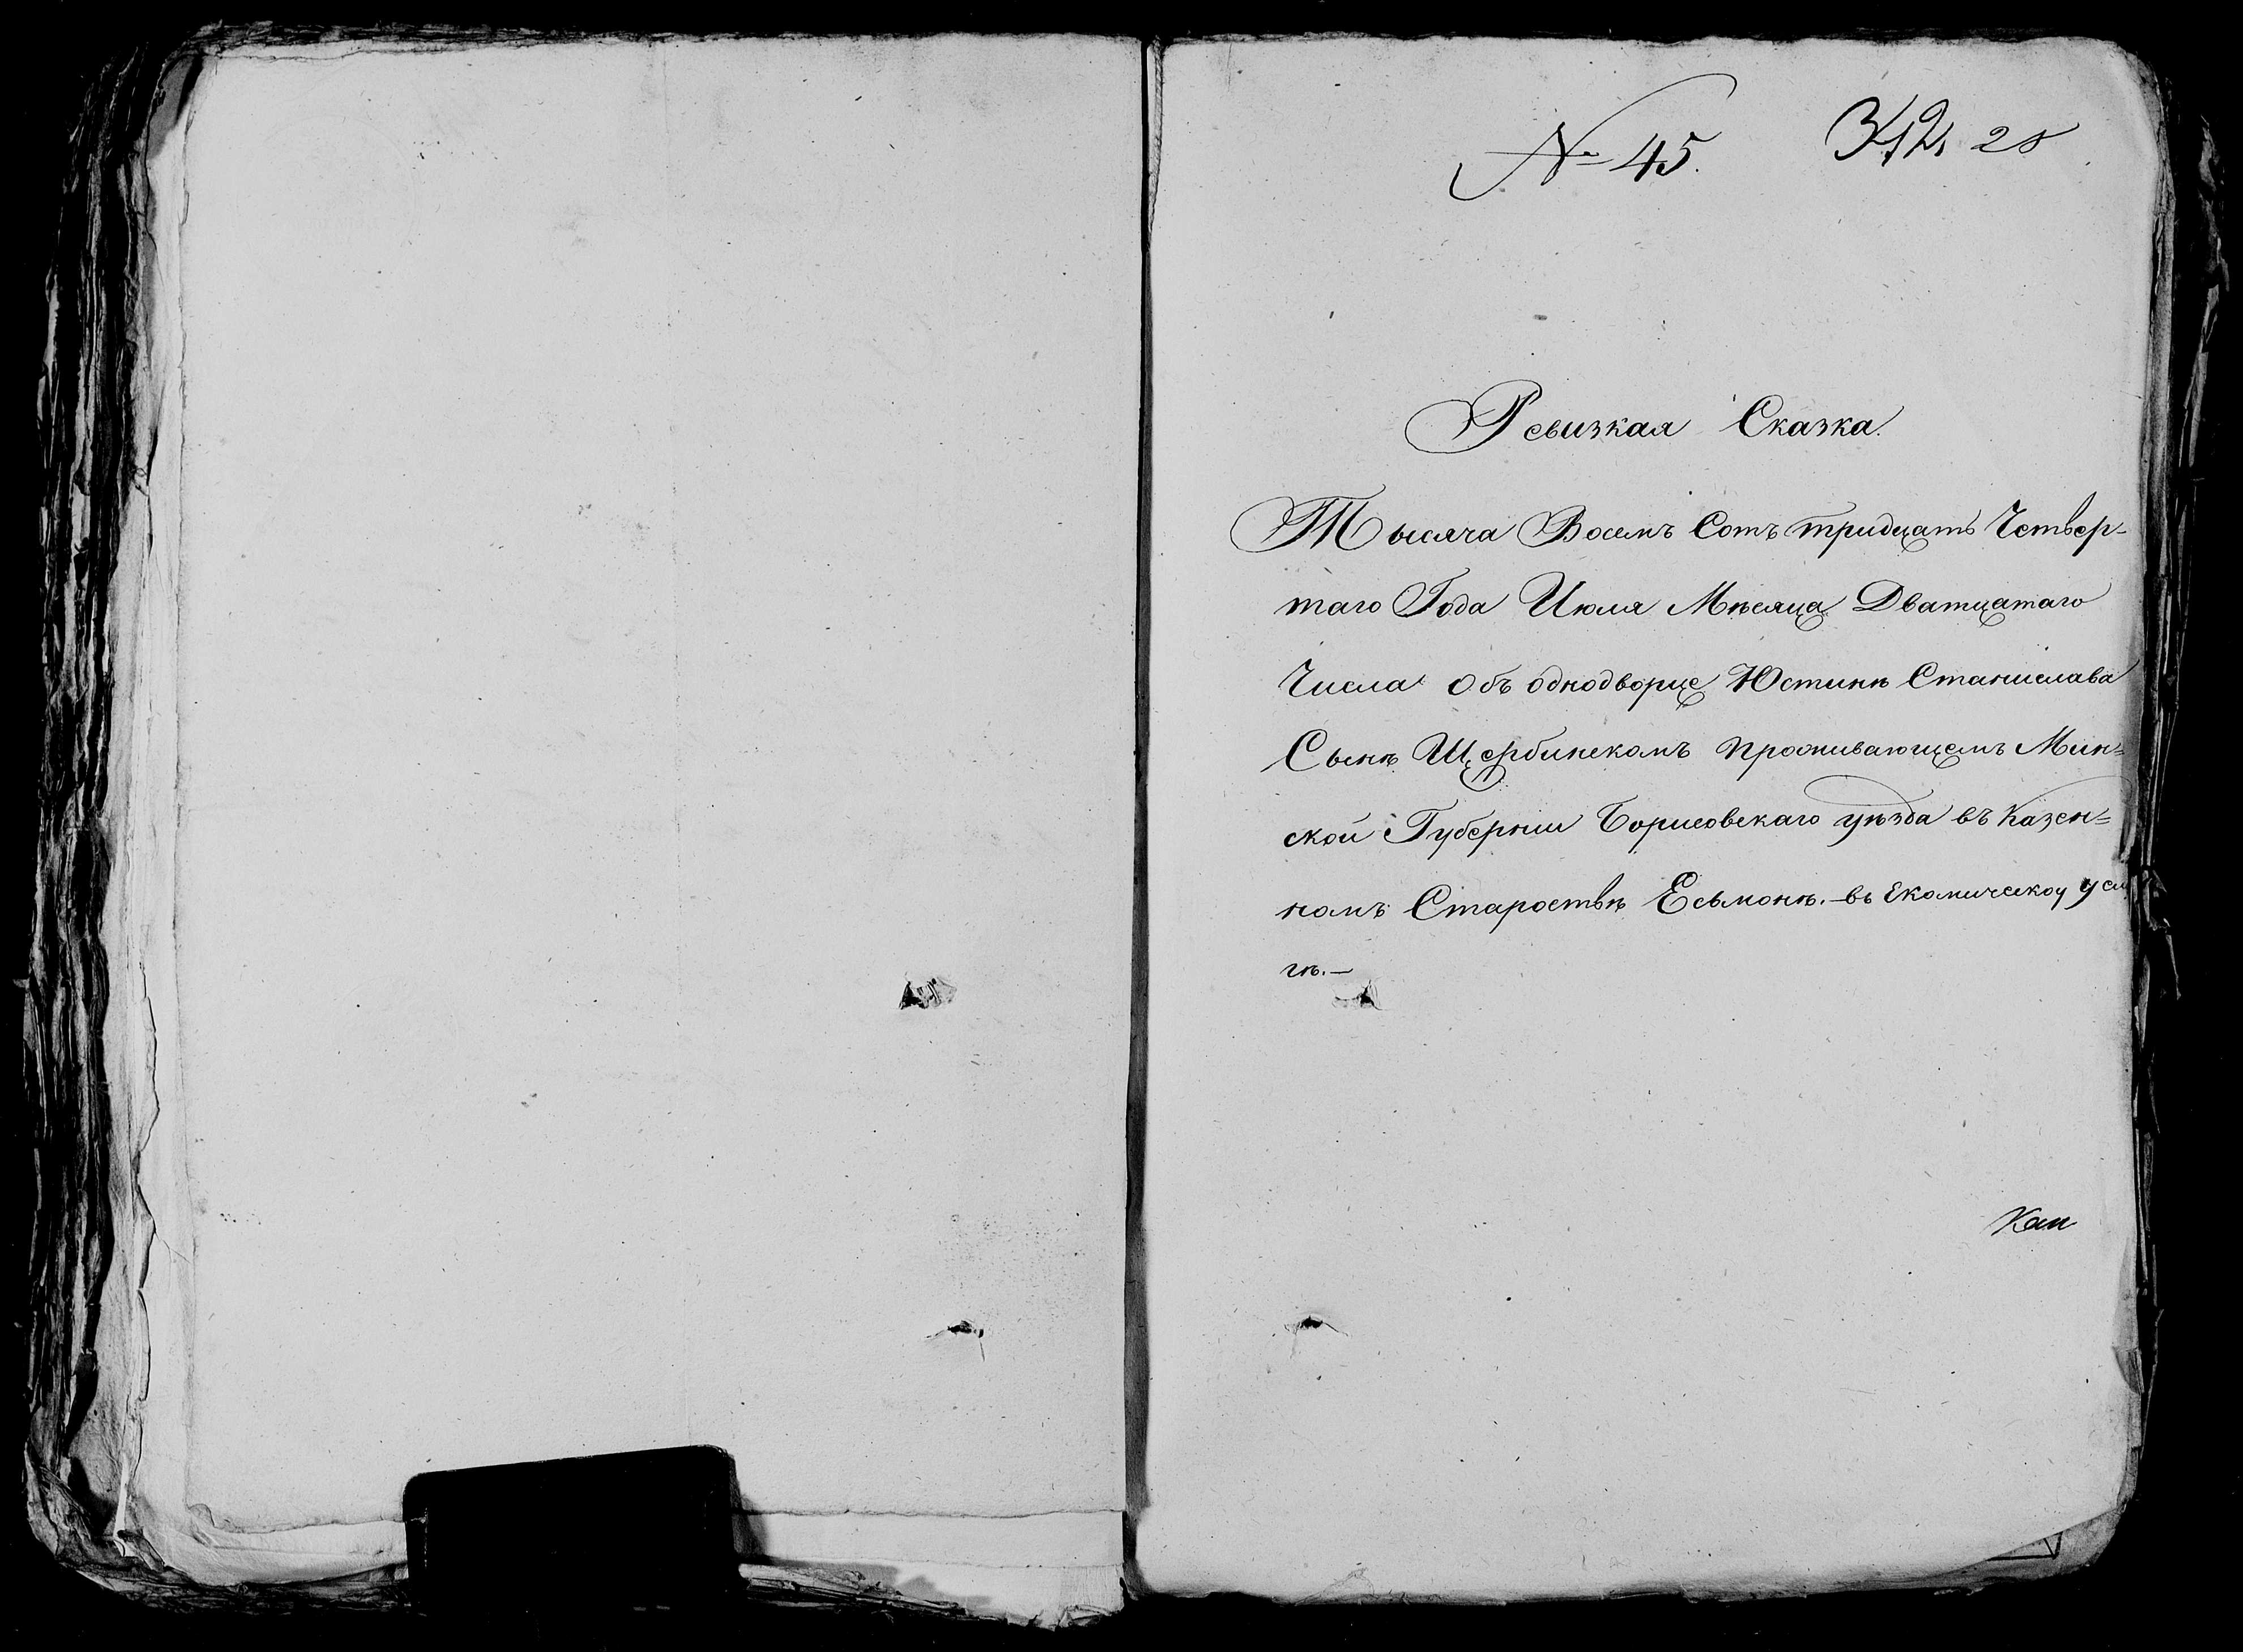 № 45. 342 28
Ревизкая Сказка.
Тысяча Восемъ Сотъ тридцать Четвер-
таго Года Июля Мѣсяца Дватцатаго
Числа Объ однодворце Юстинѣ Станислава
Сынѣ Щербинскомъ проживающемъ Мин=
ской Губернии Борисовскаго уѣзда въ Казен=
номъ Старостве Есьмонѣ. въ
гѣ.—